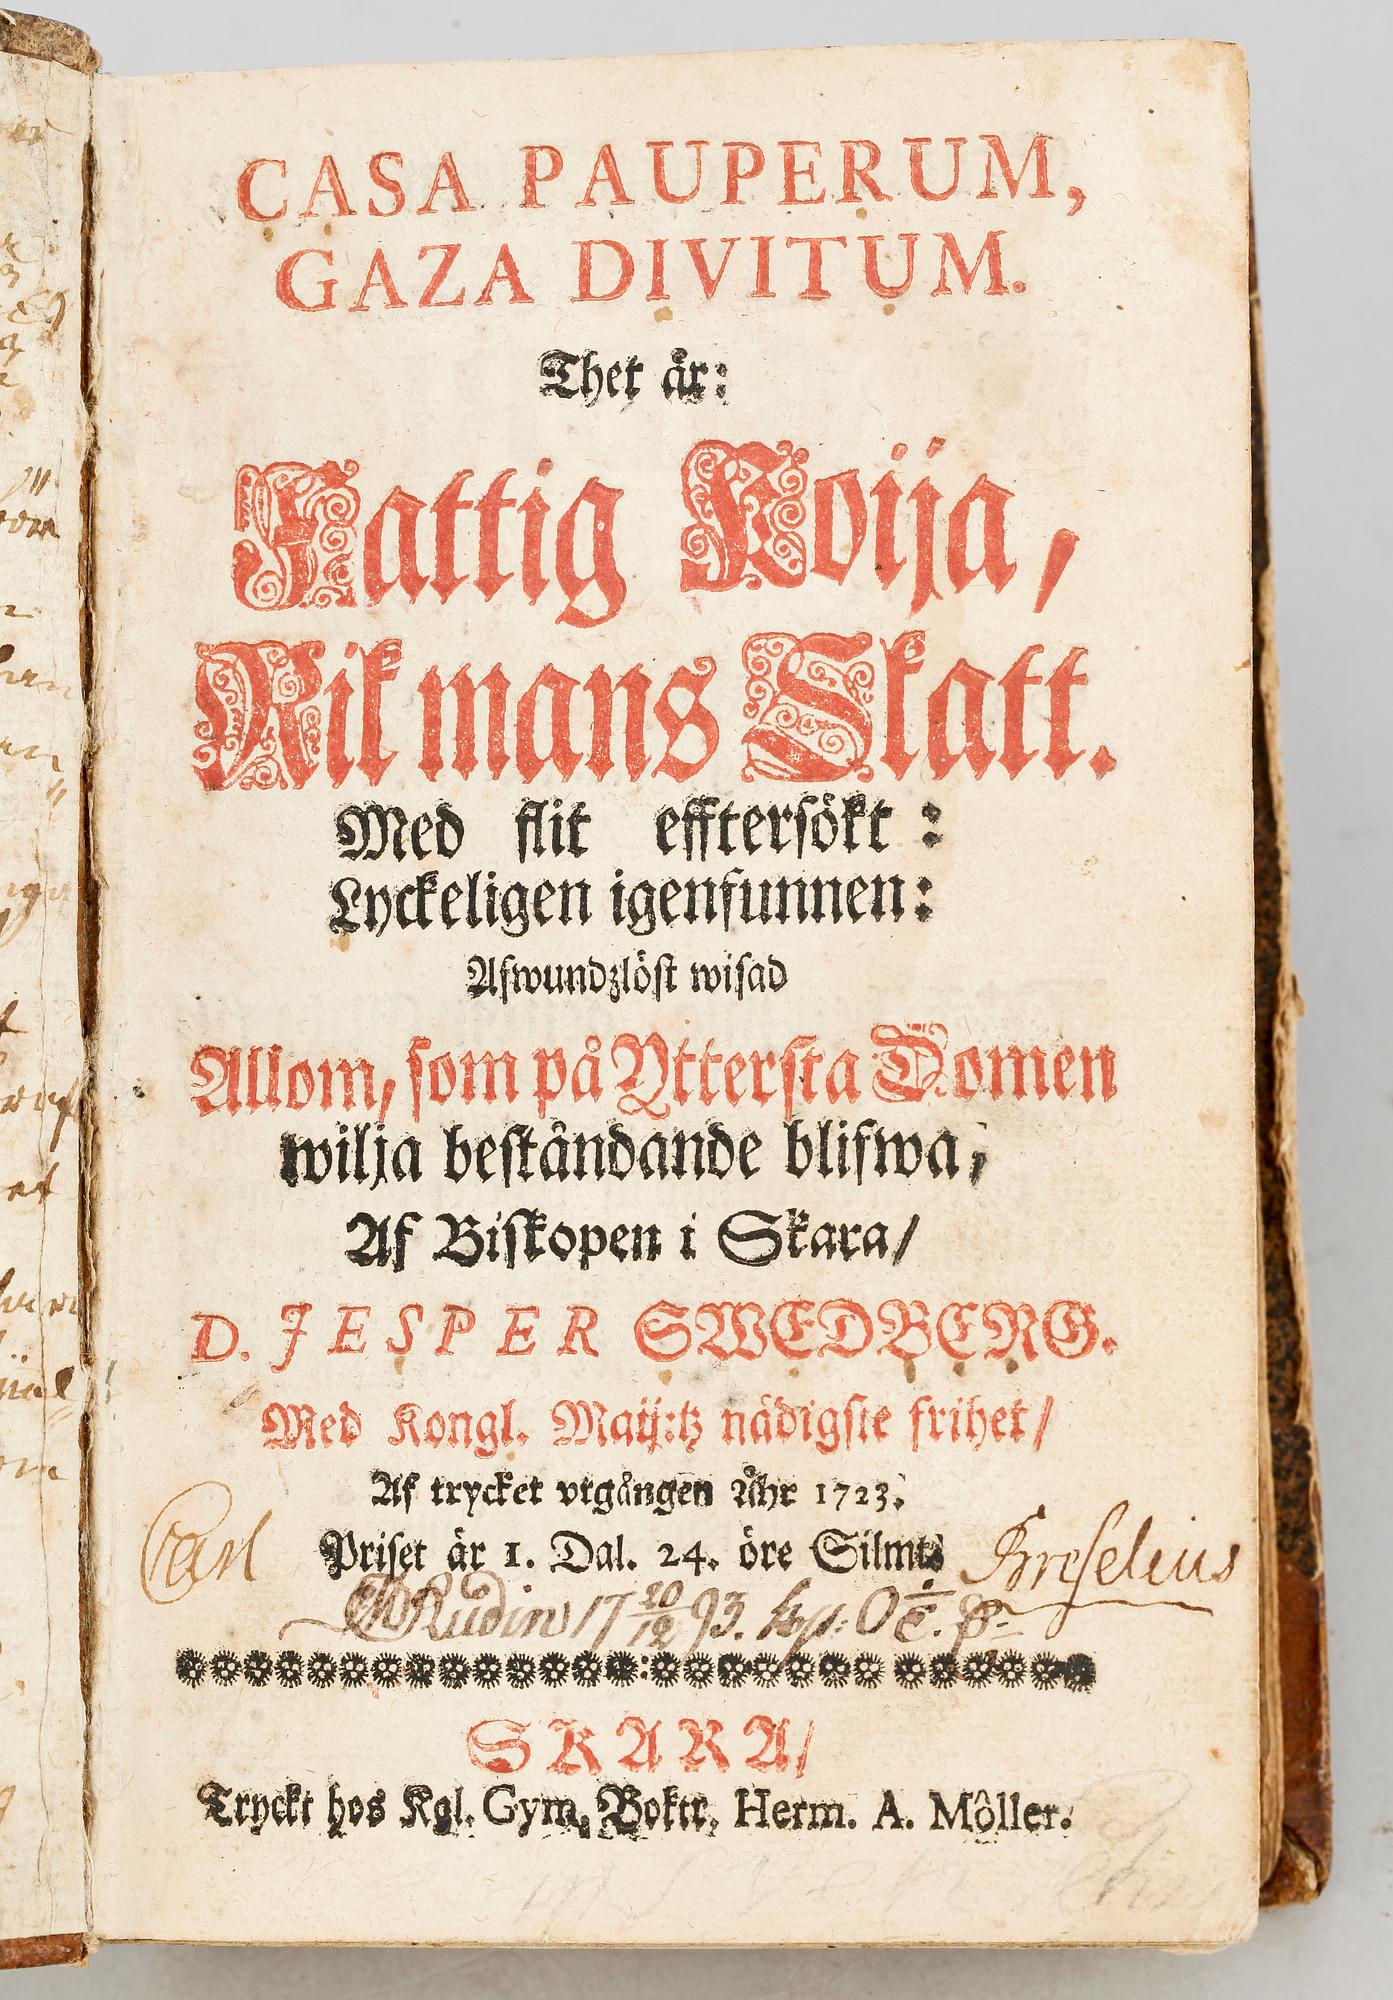 CASA PAUPERUM,
GAZA DIVITUM.
Thet är:
Fattig Koija,
Rik mans Skatt.
Med flit efftersökt:
Lyckeligen igenfunnen:
Afwundzlöst wisad
Allom, som på Yttersta Domen
wilja beståndande blifwa,
Af Biskopen i Skara/
D. JESPER SWEDBERG.
Med Kongl. Maij:tz nädigste frihet/
Af trycket vtgången Åhr 1723.
Priset är 1. Dal. 24. öre Silmt.
Carl Breselius
Rudin 17 20/12 93.
SKARA/
Tryckt hos Kgl. Gym. Boktr. Herm. A. Môller.